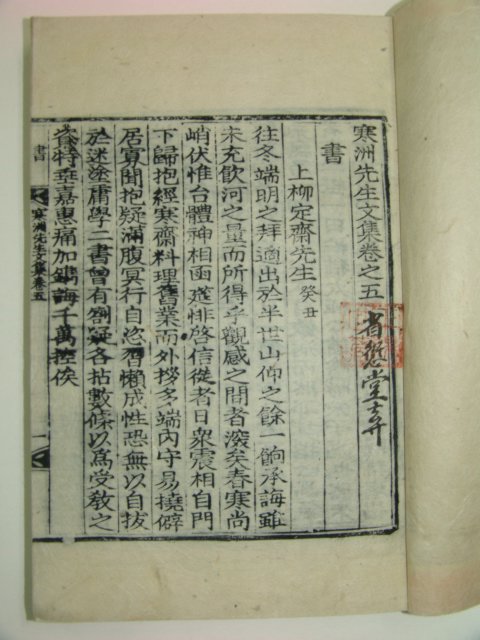 寒洲先生文集卷之五
省愆堂弆
書
上柳定齋先生 癸丑
往冬端明之拜適出於半世山仰之餘一餉承誨雖
未充飮河之量而所得乎觀感之間者深矣春寒尚
峭伏惟台體神相函筵啓信從者日衆震相自門
下歸抱經寒齋料理舊業而外撓多端內守易撓僻
居寡聞抱疑滿腹冥行自恣習懶成性恐無以自拔
於迷途庸學二書曾有劄疑各拈數條以爲受敎之
資特垂嘉惠痛加鐫誨千萬控俟
書
寒洲先生文集卷五
一